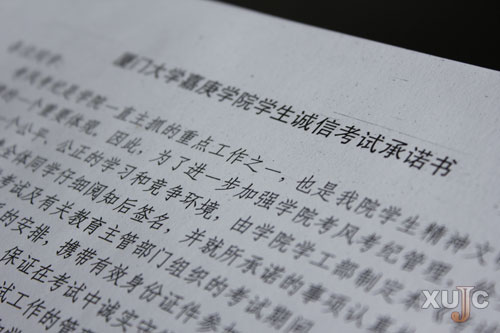 厦门大学嘉庚学院学生诚信考试承诺书
考风考纪是学院一直主抓的重点工作之一，也是我院学生精神文
一个重要体现。因此，为了进一步加强学院考风考纪管理，
个公平、公正的学习和竞争环境，由学院学工部制定本
全体同学仔细阅知后签名，并就所承诺的事项认真
考试及有关教育主管部门组织的考试期间，
的安排，携带有效身份证件参加
保证在考试中诚实守
试工作的管
XUJC